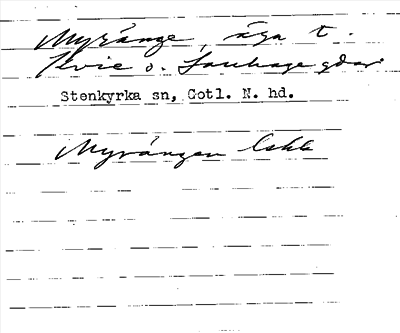 Myränge, äga t.
Kvie o. Lauhage gdar
Stenkyrka sn, Gotl. N. hd.
Myrängen Cskh